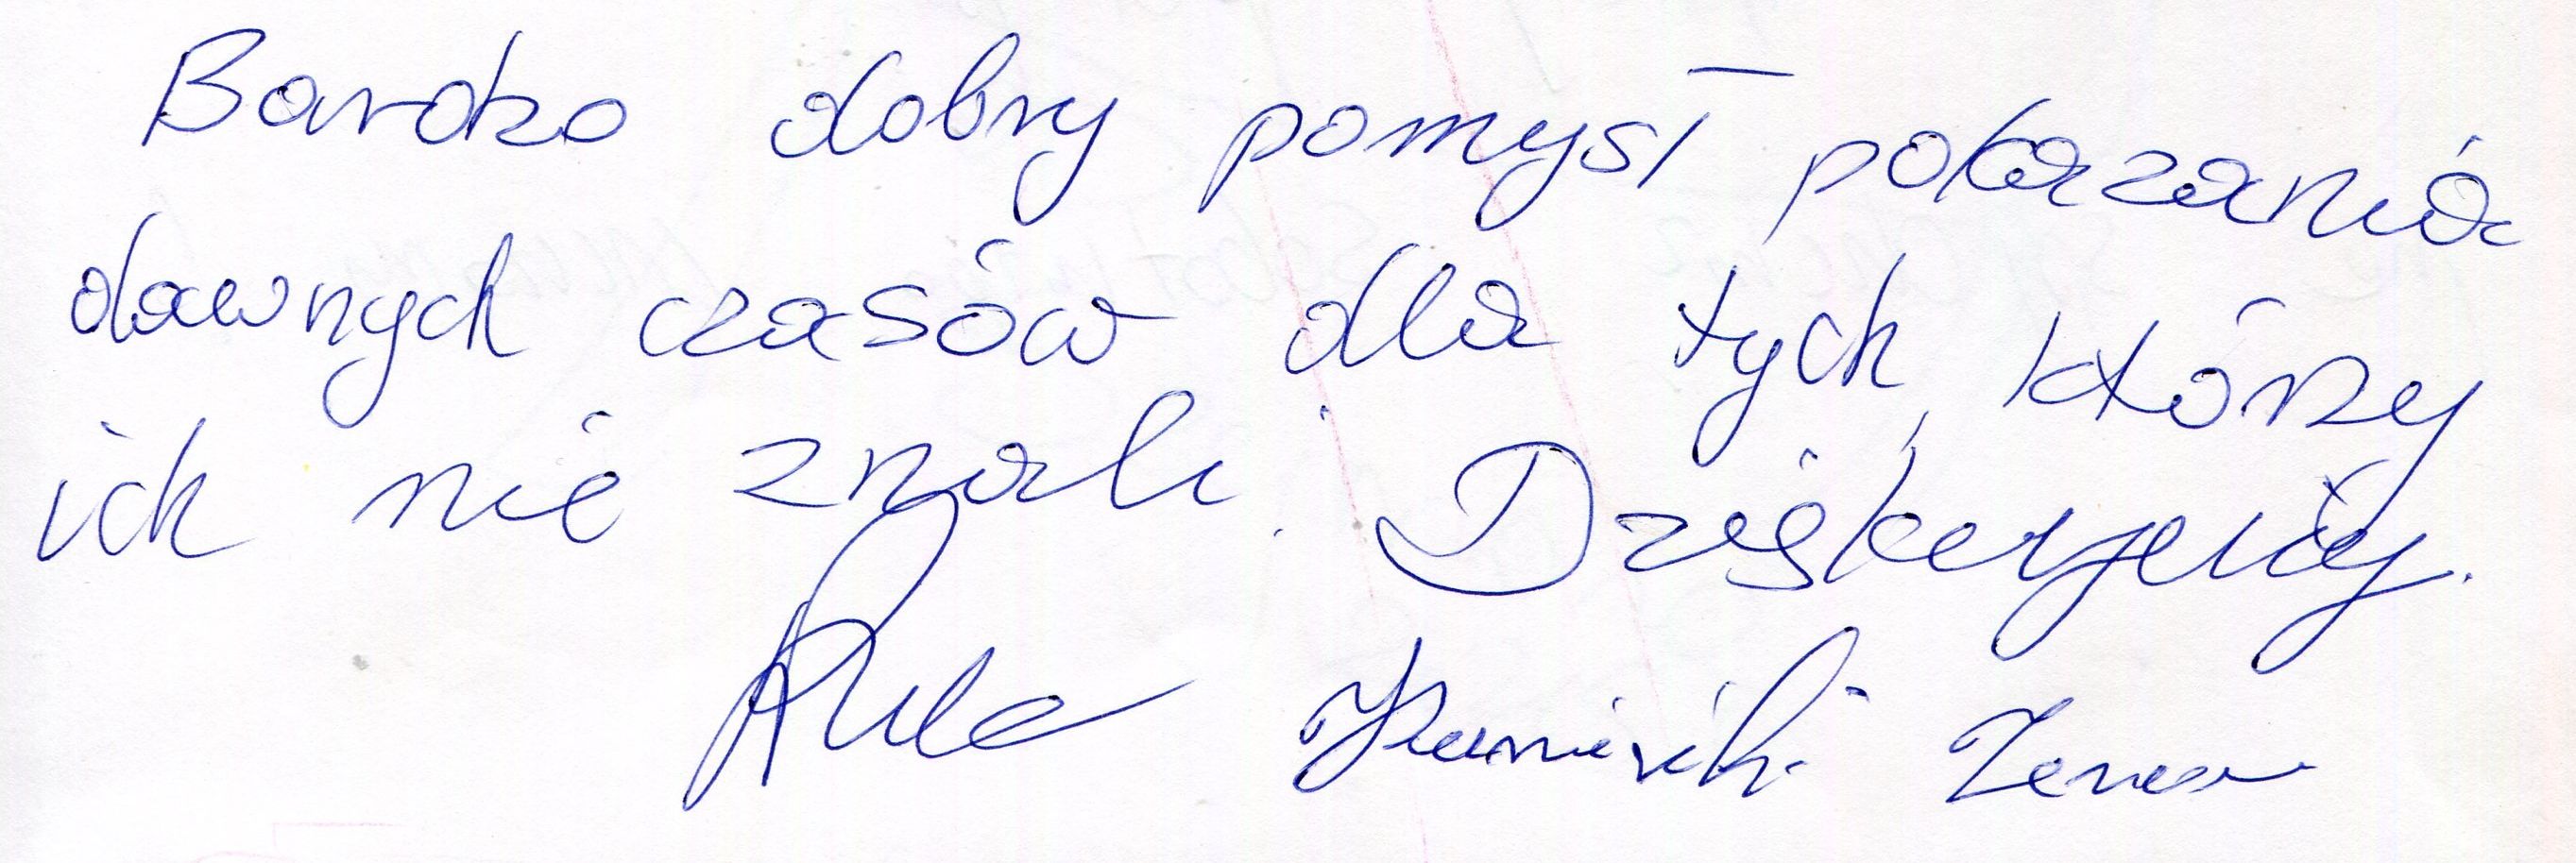 Bardzo dobry pomysł pokazania
dawnych czasów dla tych, którzy
ich nie znali. Dziękujemy.